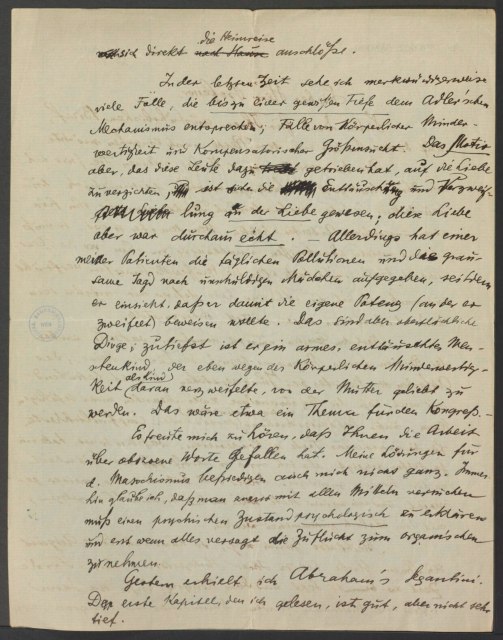 die Heimreise
sich direkt nach Hause anschlöße.
In der letzten Zeit sehe ich merkwürdigerweise
viele Fälle, die bis zu einer gewissen Tiefe dem Adler'schen
Mechanismus entsprechen; Fälle von Körperlicher Minder-
wertigkeit und kompensatorischer Größensucht. Das Motiv
aber, das diese Leute dazu getrieben hat, auf die Liebe
zu verzichten, ist die Enttäuschung und Verzweif-
lung an der Liebe gewesen; diese Liebe
aber war durchaus echt. — Allerdings hat einer
meiner Patienten die täglichen Pollutionen und die grau-
same Jagd nach unschuldigen Mädchen aufgegeben, seitdem
er einsieht, daß er damit die eigene Potenz (an der er
zweifelt) beweisen wollte. Das sind aber oberflächliche
Dinge; zutiefst ist er ein armes, enttäuschtes Men-
schenkind, der eben wegen der Körperlichen Minderwertig-
als Kind
keit daran verzweifelte, von der Mutter geliebt zu
werden. Das wäre etwa ein Thema für den Kongreß. —
Es freute mich zu hören, daß Ihnen die Arbeit
über obszoene Worte gefallen hat. Meine Lösungen für
d. Masochismus befriedigen auch mich nicht ganz. Immer-
hin glaube ich, daß man zuerst mit allen Mitteln versuchen
muß einen psychischen Zustand psychologisch zu erklären
und erst wenn alles versagt die Zuflucht zum organischen
zu nehmen.
Gestern erhielt ich Abraham's Segantini.
Das erste Kapitel, den ich gelesen, ist gut, aber nicht sehr
tief.